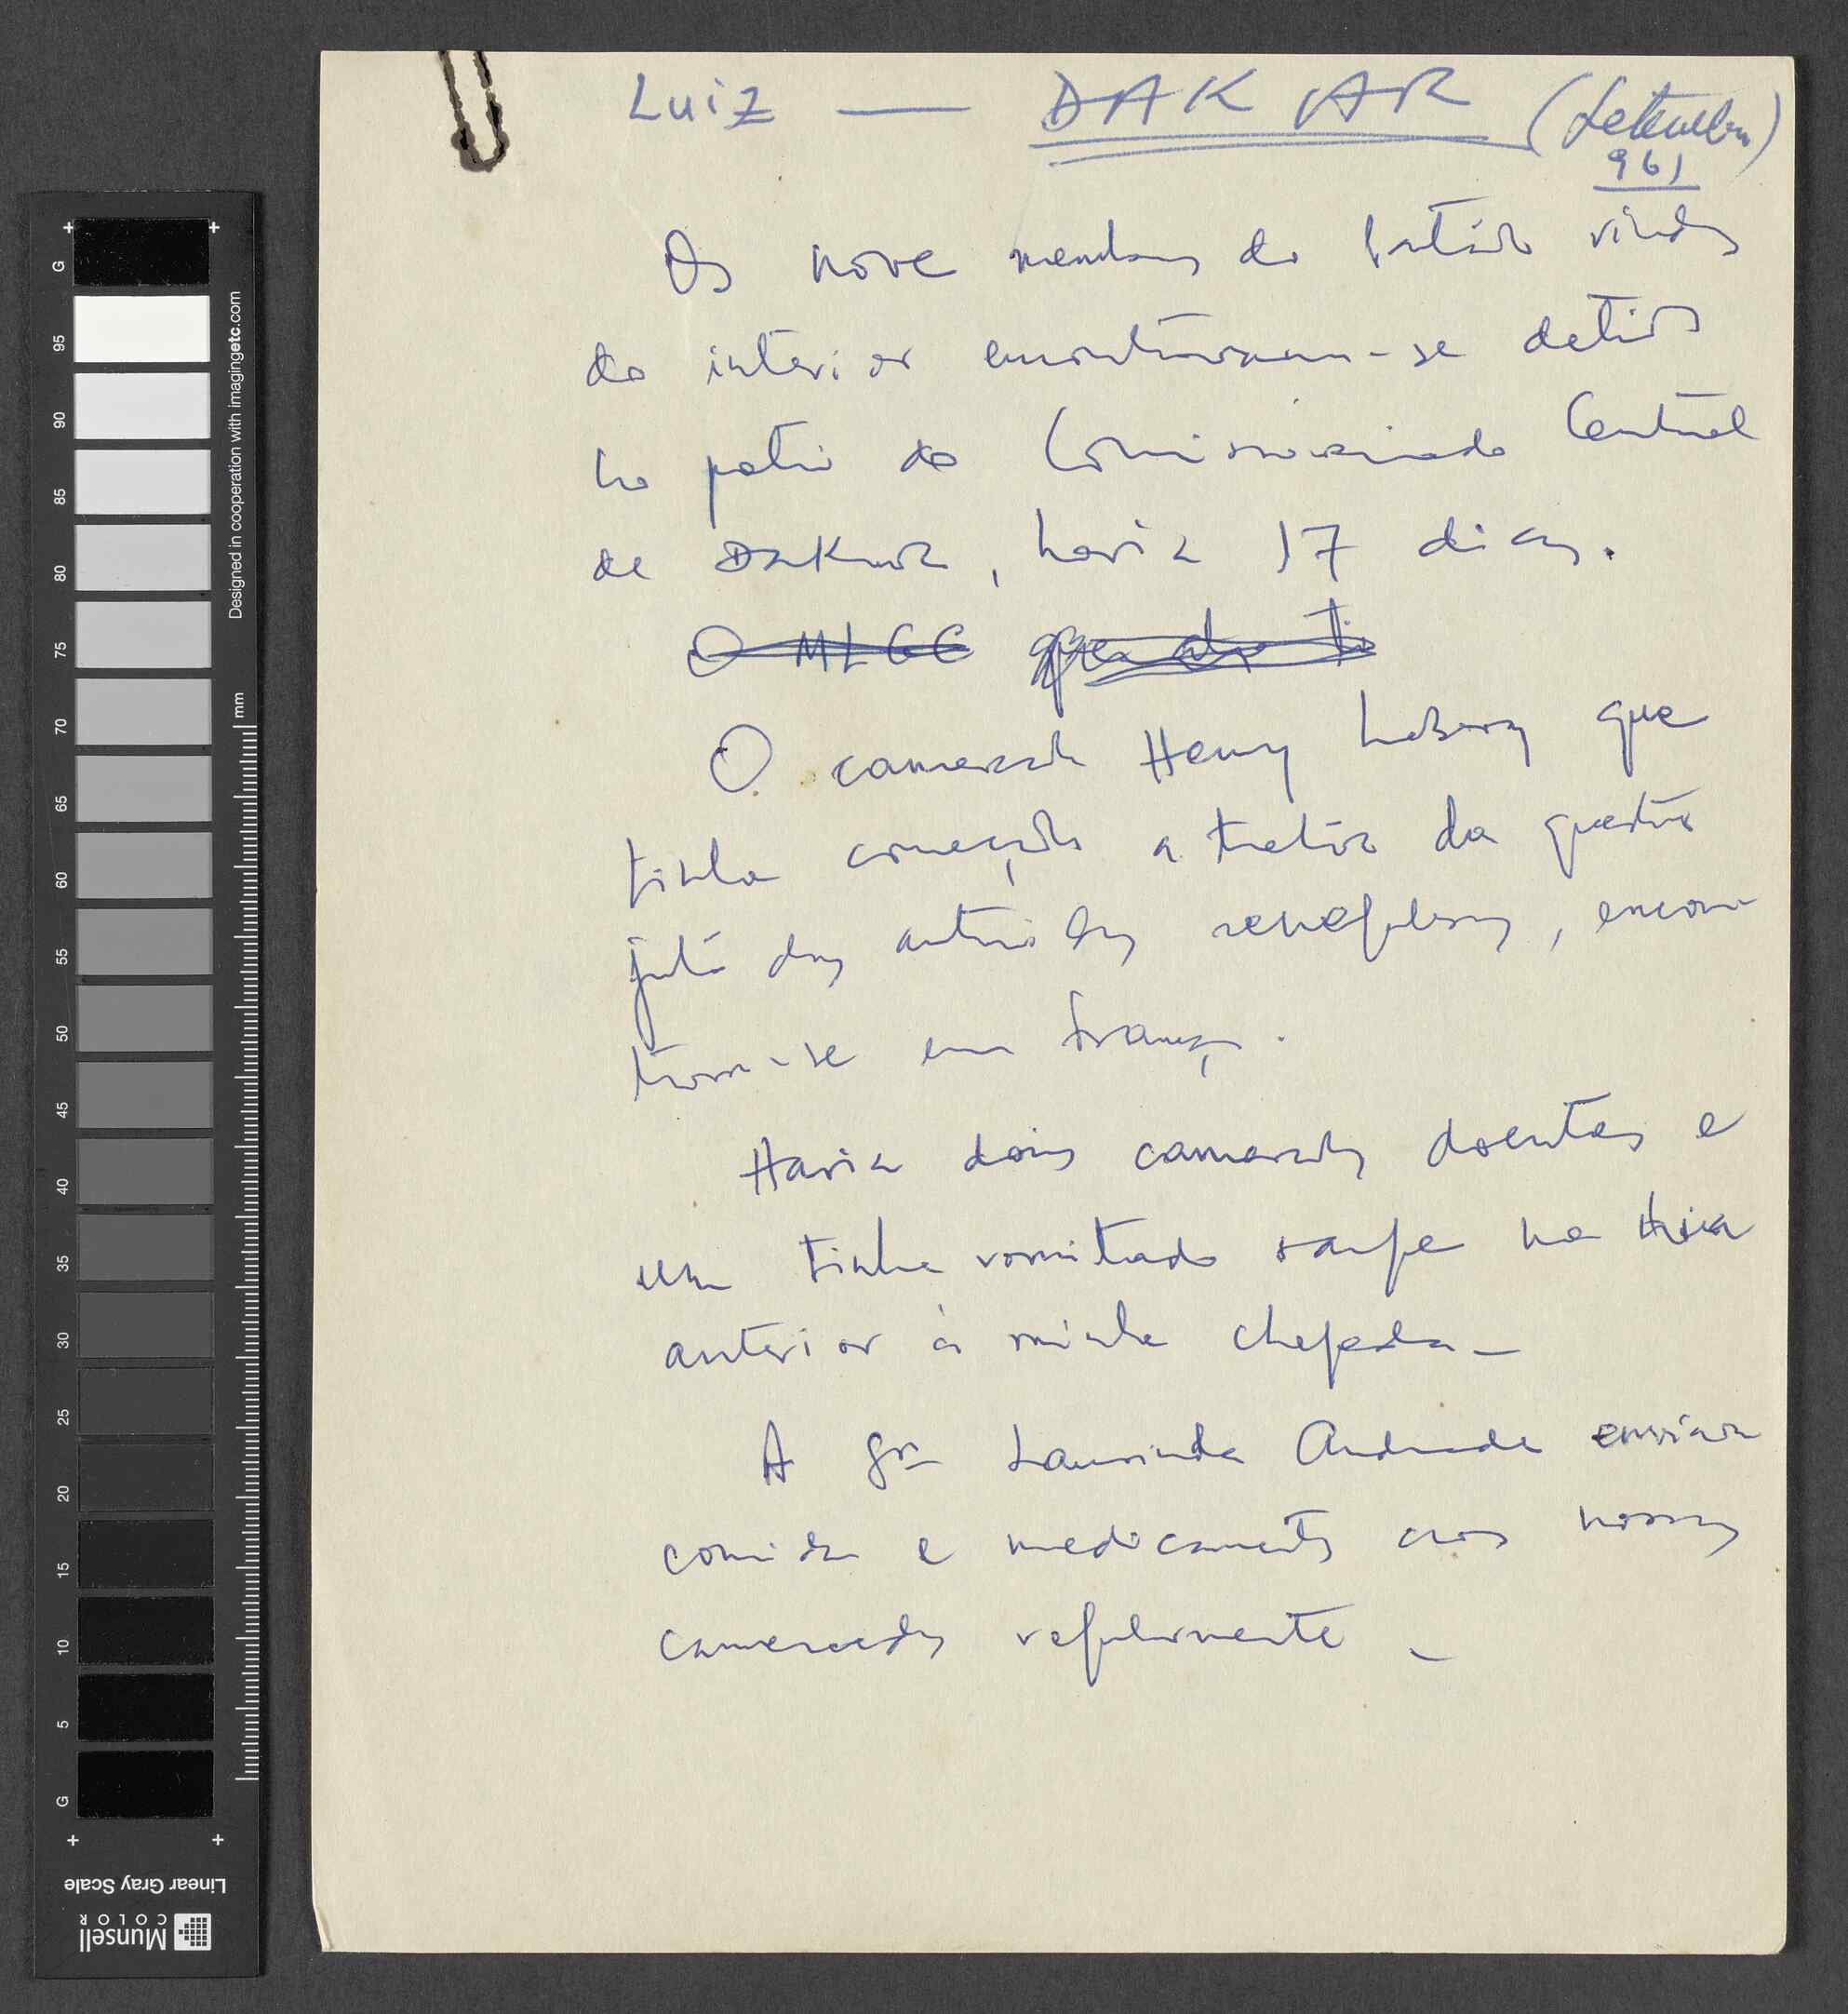 Luiz — DAKAR (Setembro)
961
Os nove membros do Partido vindos
do interior encontravam-se detidos
no patio do Comissariado Central
de Dakar, havia 17 dias.
O MLGC
O camarada Henry Labery que
tinha começado a tratar da questão
junto das autoridades senegalesas, encon
trava-se em França.
Havia dois camaradas doentes e
um tinha vomitado sangue na
anterior à minha chegada –
A Sra Laurinda Andrade enviava
comida e medicamentos aos nossos
camaradas regularmente –
G
95
90
85
80
75
70
65
60
55
50
45
40
35
30
25
20
15
10
5
G
mm
Designed in cooperation with imagingetc.com
Linear Gray Scale
Munsell
COLOR